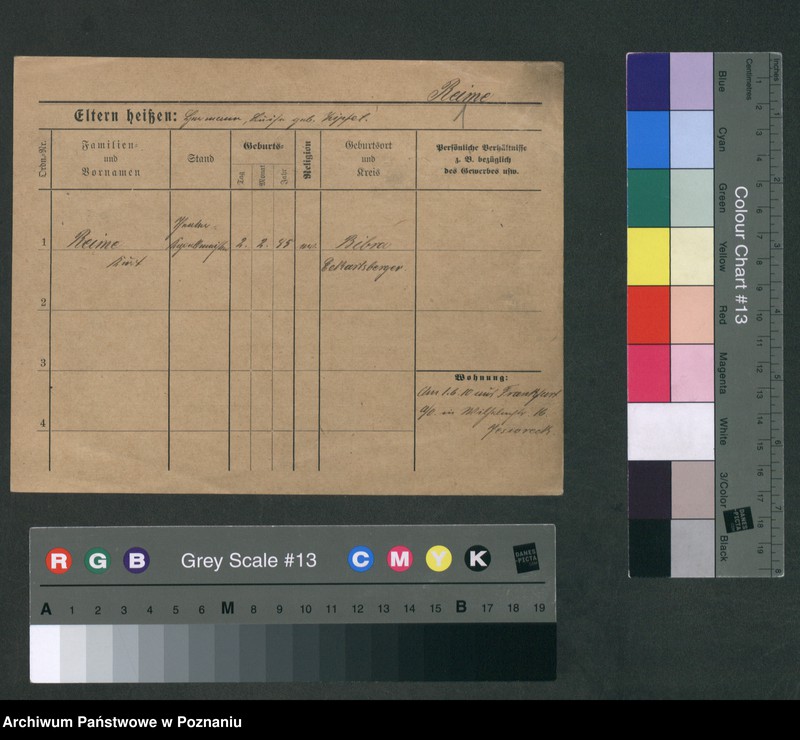 Reime
Eltern heißen: Hermann, Luise geb.
Ordn.-Nr.
Familien-
und
Vornamen
Stand
Geburts-
Tag
Monat
Jahr
Religion
Geburtsort
und
Kreis
Persönliche Verhältnisse
z. B. bezüglich
des Gewerbes usw.
1 Reime 2. 2. 85 ev. Bibra
Kurt Eckartsberga
2
3
4
Wohnung:
Am 1.6.10 aus Frankfurt
a/O in 16
Blue
Cyan
Green
Yellow
Red
Magenta
White
3/Color
Black
Colour Chart #13
Centimetres
1 2 3 4 5 6 7 8 9 10 11 12 13 14 15 16 17 18 19
Inches
1 2 3 4 5 6 7 8
DANES
PICTA
R G B Grey Scale #13 C M Y K
DANES
PICTA
A 1 2 3 4 5 6 M 8 9 10 11 12 13 14 15 B 17 18 19
Archiwum Państwowe w Poznaniu